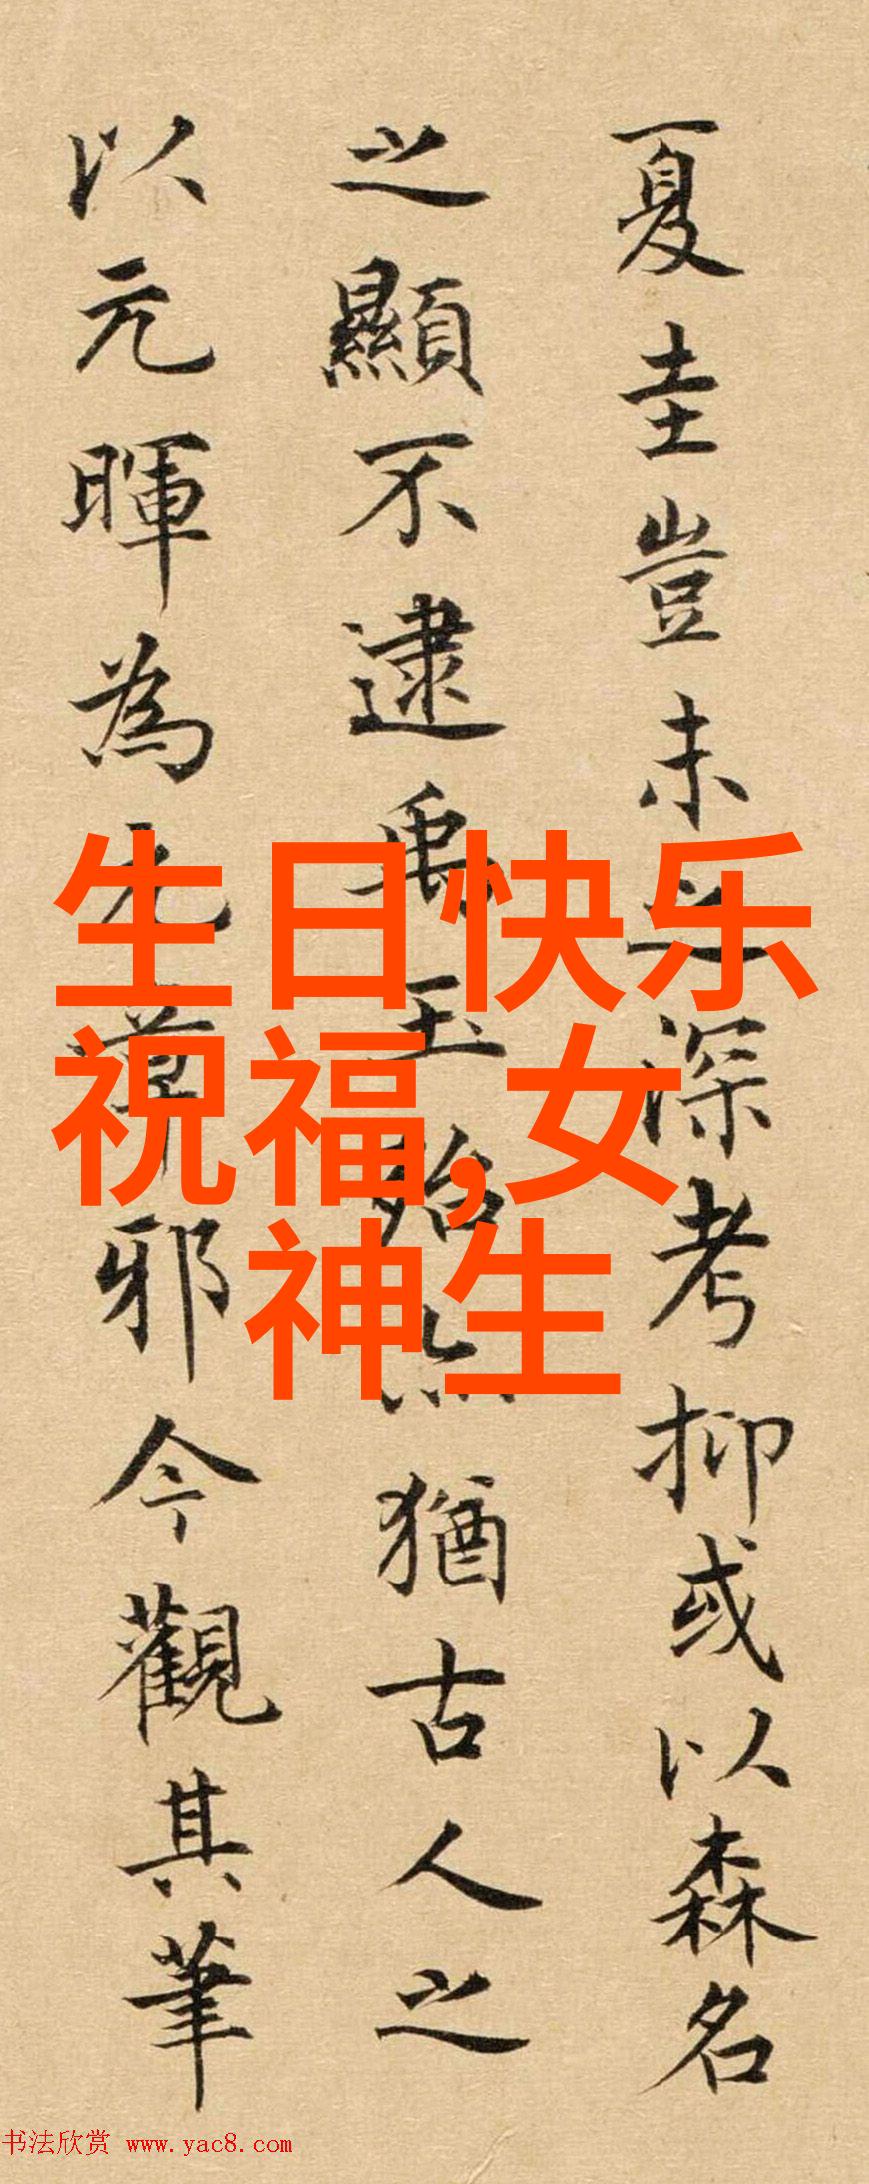 夏圭豈未之深考抑或以森名
之顯不逮禹玉殆亦猶古人之
以元暉為元章邪今觀其筆
生日快乐
祝福,女
神生
书法欣赏 www.yac8.com